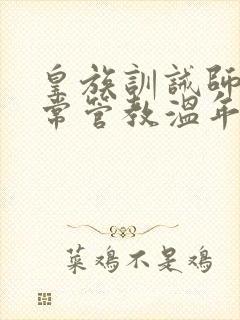 皇族訓誡師
常管教溫年
菜鸡不是鸡